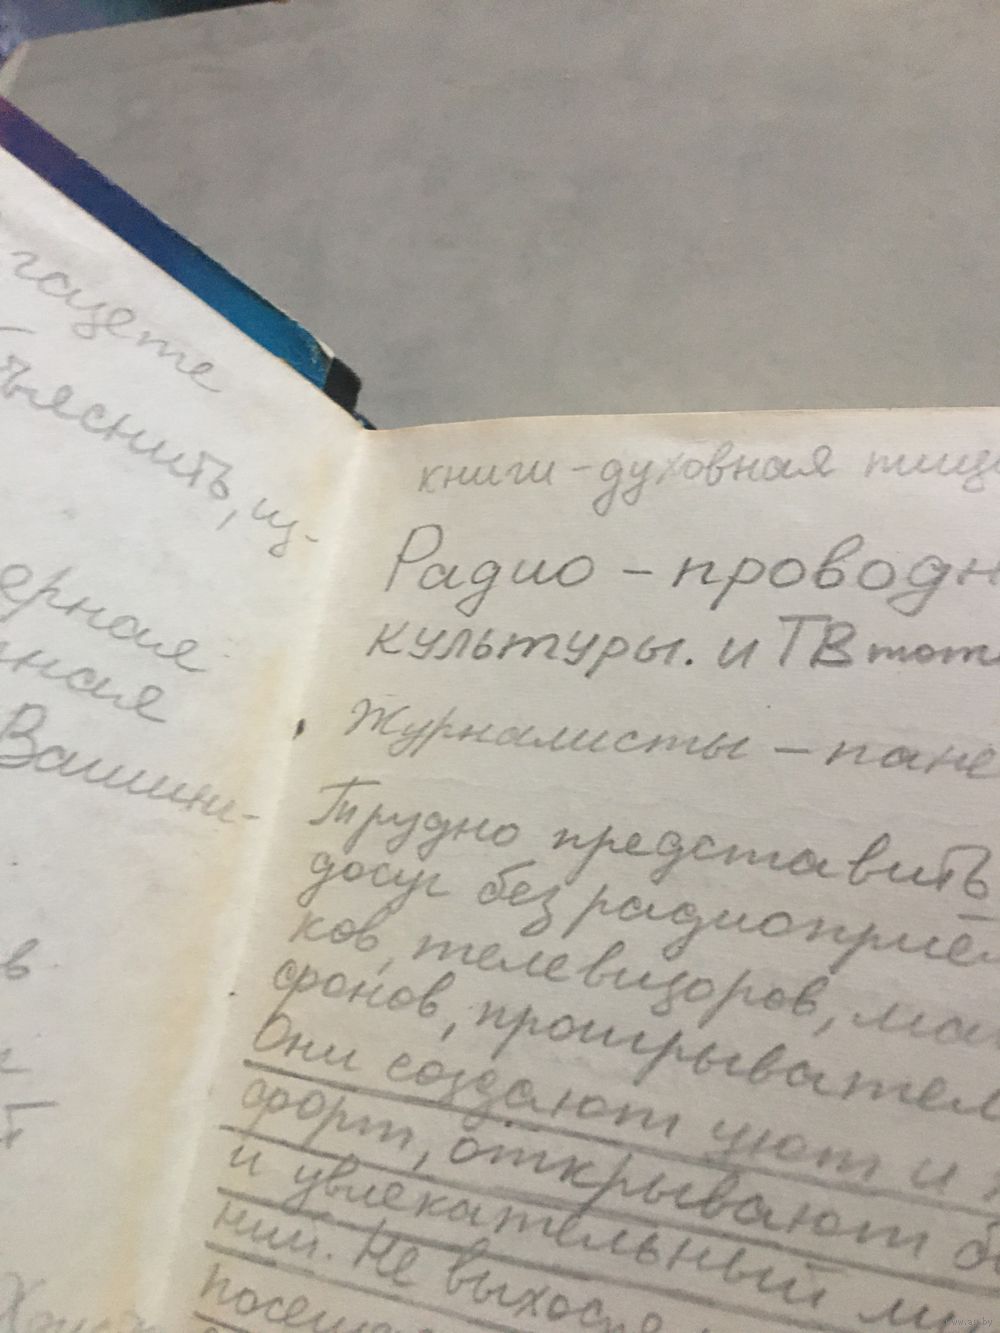 газете
ъяснить, из-
ерная
нная
Вашинг-
в
книги - духовная пищ
Радио - проводн
культуры. и ТВ тоте
Журналисты - пане
Трудно представить
досуг без радиоприём
ков, телевизоров, маг
фонов, проигрывател
Они создают уют и к
форт, открывают б
и увлекательный ми
ний. Не выходя
посеща
www.ay.by